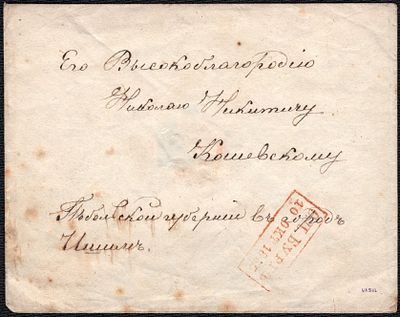 Его Высокоблагородію
Николаю Никитичу
Кошевскому
Тобольской губерніи въ городъ
Ишимъ.
10 ОКТ